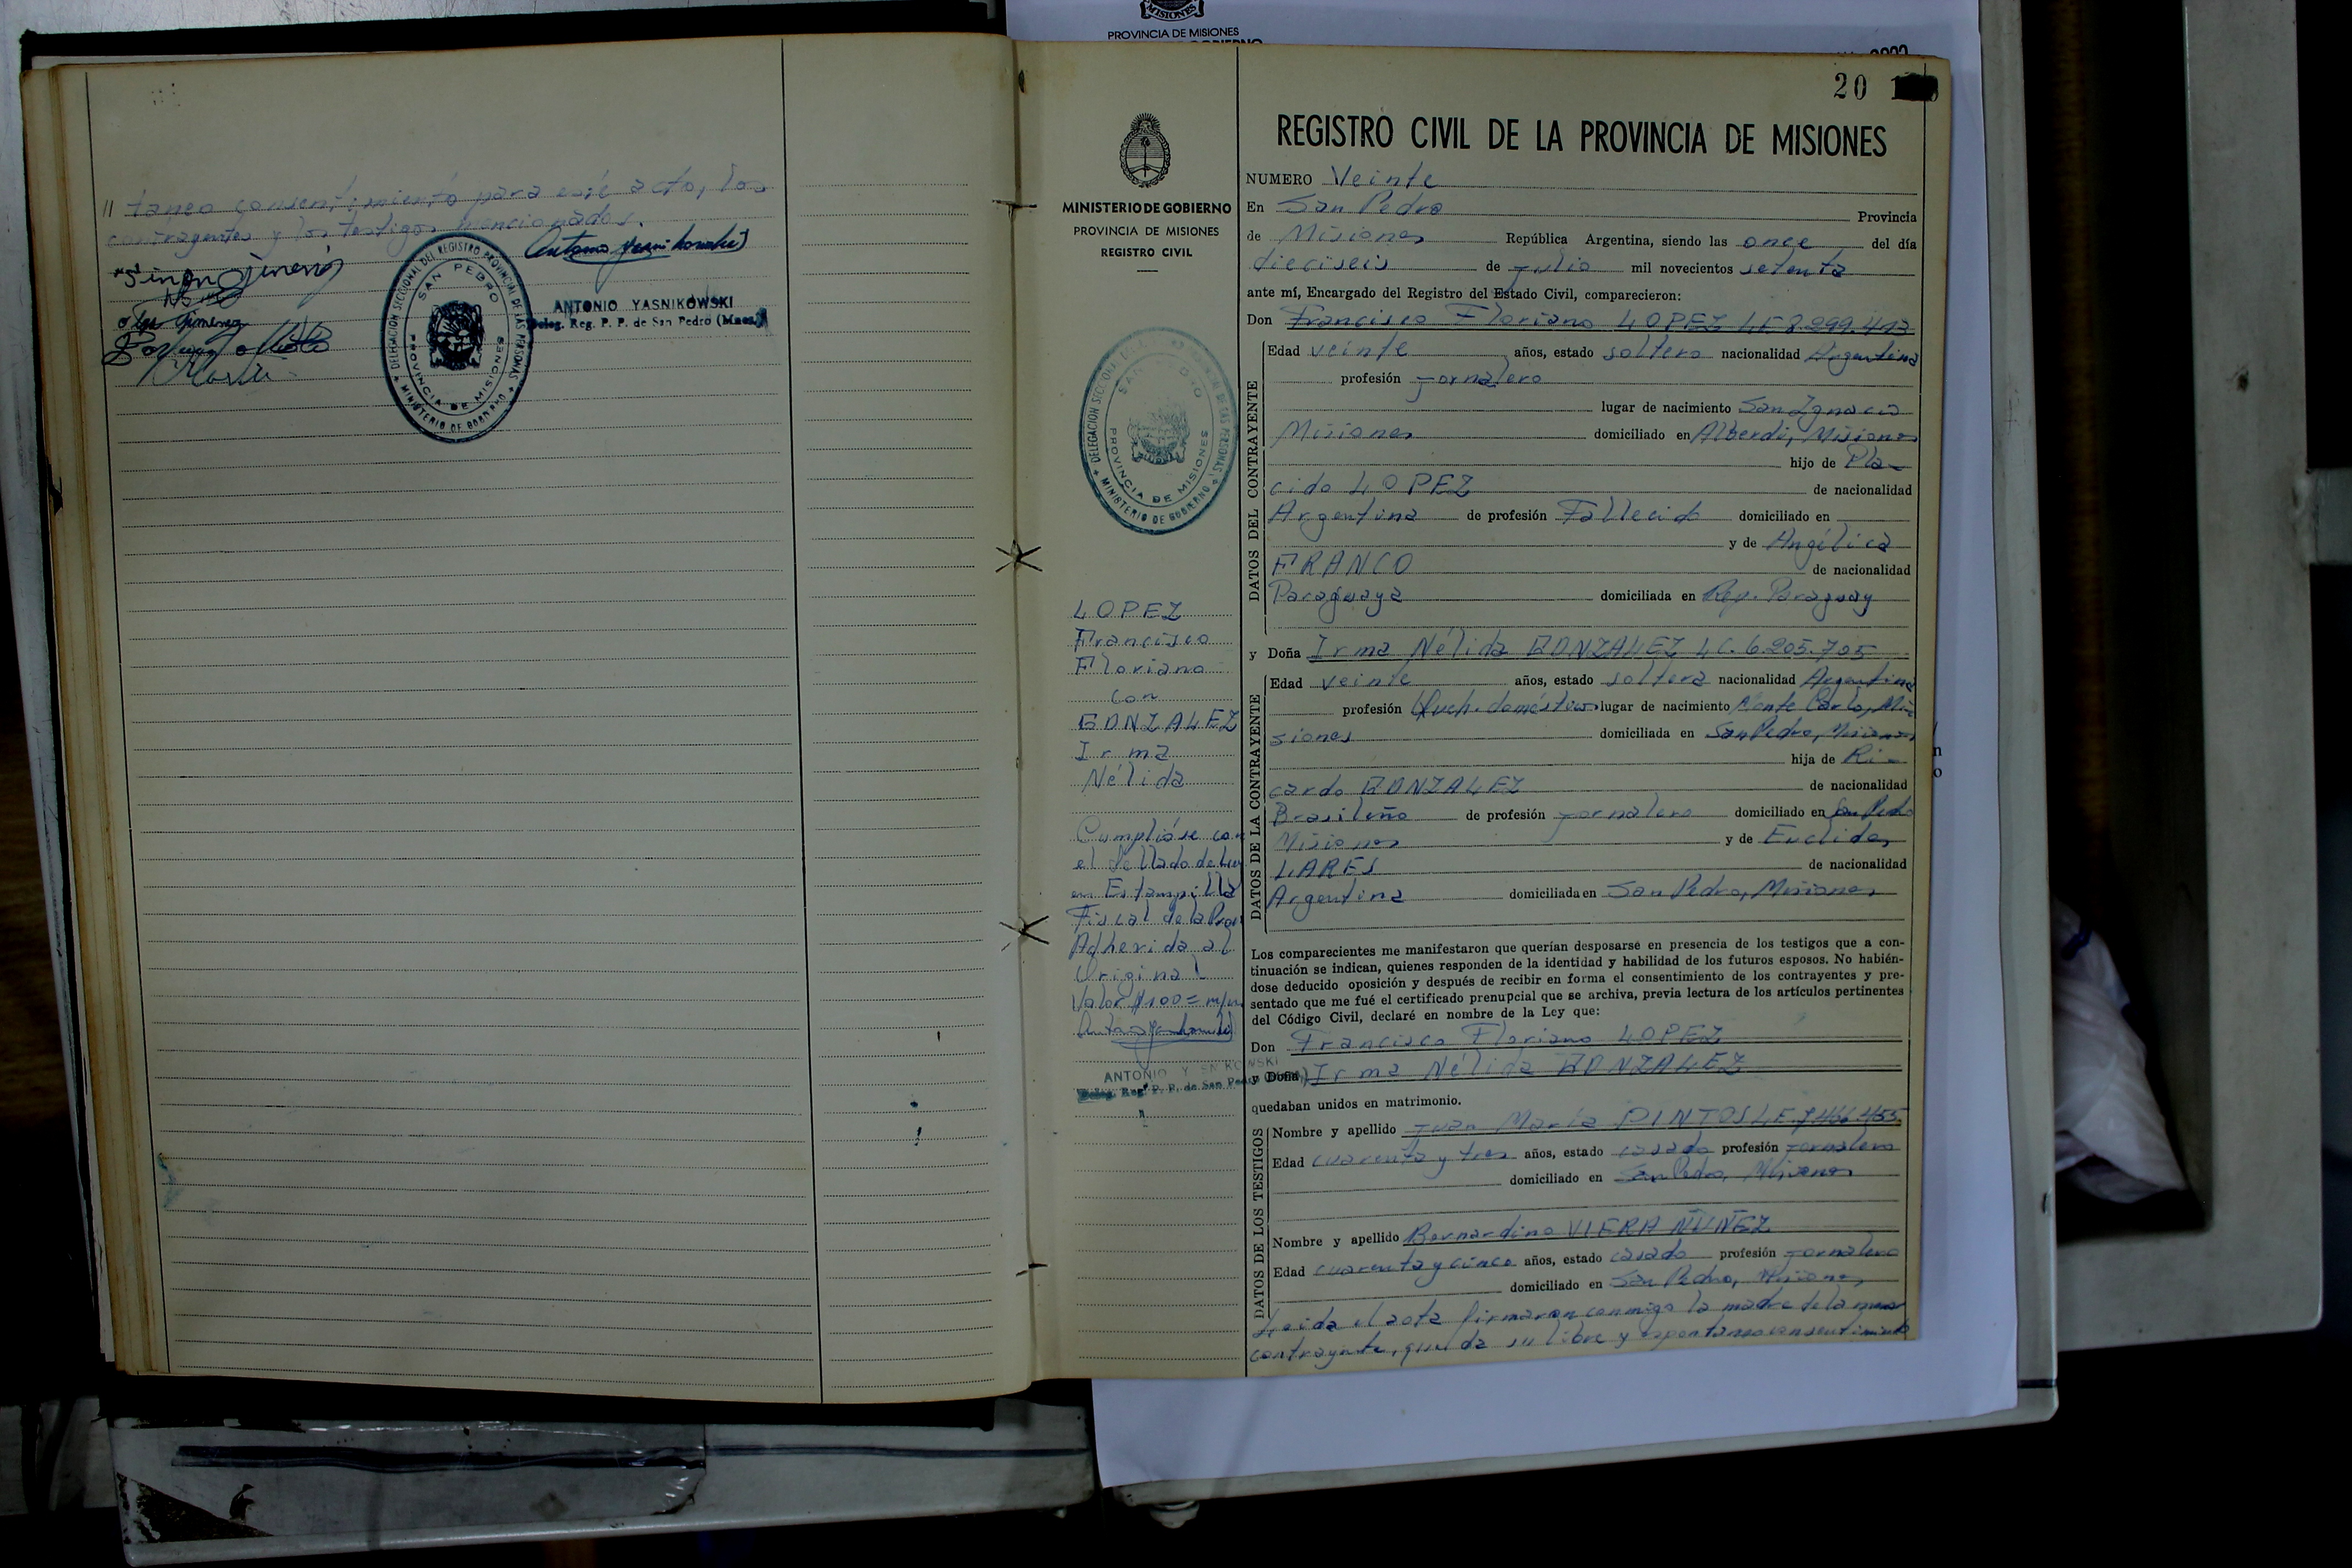 // taneo consentimiento para este acto, los
contrayentes y los testigos mencionados.
DELEGACION SECCIONAL DEL REGISTRO PROVINCIAL DE LAS PERSONAS
SAN PEDRO
PROVINCIA DE MISIONES
MINISTERIO DE GOBIERNO
ANTONIO YASNIKOWSKI
Deleg. Reg. P. P. de San Pedro (Mnes.)
MISIONES
PROVINCIA DE MISIONES
20
MINISTERIO DE GOBIERNO
PROVINCIA DE MISIONES
REGISTRO CIVIL
DELEGACION SECCIONAL DEL REGISTRO PROVINCIAL DE LAS PERSONAS
SAN PEDRO
PROVINCIA DE MISIONES
MINISTERIO DE GOBIERNO
LOPEZ
Francisco
Floriano
con
GONZALEZ
Irma
Nélida
Cumplióse con
el sellado de Ley
en Estampilla
Fiscal de la Prov
Adherida al
Original
Valor $100= m/n
ANTONIO YASNIKOWSKI
Deleg. Reg. P. P. de San Pedro
REGISTRO CIVIL DE LA PROVINCIA DE MISIONES
NUMERO Veinte
En San Pedro Provincia
de Misiones República Argentina, siendo las once del día
dieciseis de Julio mil novecientos setenta
ante mí, Encargado del Registro del Estado Civil, comparecieron:
Don Francisco Floriano LOPEZ LE 8.299.413
DATOS DEL CONTRAYENTE
Edad veinte años, estado soltero nacionalidad Argentina
profesión Jornalero
lugar de nacimiento San Ignacio
Misiones domiciliado en Alberdi, Misiones
hijo de Plá-
cido LOPEZ de nacionalidad
Argentina de profesión Fallecido domiciliado en
y de Angélica
FRANCO de nacionalidad
Paraguaya domiciliada en Rep. Paraguay
y Doña Irma Nélida GONZALEZ LC. 6.205.705
DATOS DE LA CONTRAYENTE
Edad veinte años, estado soltera nacionalidad Argentina
profesión Queh. domésticos lugar de nacimiento Monte Carlo, Mi-
siones domiciliada en San Pedro, Misiones
hija de Ri-
cardo GONZALEZ de nacionalidad
Brasileño de profesión Jornalero domiciliado en San Pedro
Misiones y de Euclides
LARES de nacionalidad
Argentina domiciliada en San Pedro, Misiones
Los comparecientes me manifestaron que querían desposarse en presencia de los testigos que a con-
tinuación se indican, quienes responden de la identidad y habilidad de los futuros esposos. No habién-
dose deducido oposición y después de recibir en forma el consentimiento de los contrayentes y pre-
sentado que me fué el certificado prenupcial que se archiva, previa lectura de los artículos pertinentes
del Código Civil, declaré en nombre de la Ley que:
Don Francisco Floriano LOPEZ
y Doña Irma Nélida GONZALEZ
quedaban unidos en matrimonio.
DATOS DE LOS TESTIGOS
Nombre y apellido Juan María PINTOS LE. 7.466.455
Edad cuarenta y tres años, estado casado profesión Jornalero
domiciliado en San Pedro, Misiones
Nombre y apellido Bernardino VIERA NUÑEZ
Edad cuarenta y cinco años, estado casado profesión Jornalero
domiciliado en San Pedro, Misiones
Leida el acta firmaron conmigo la madre de la menor
contrayente, que da su libre y espontaneo consentimiento